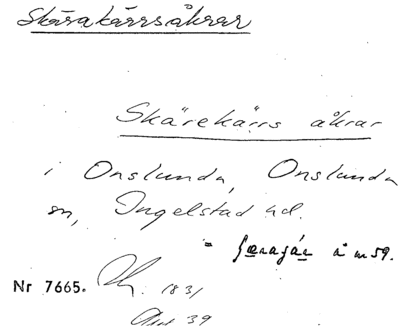 Skärakärrsåkrar
Skärekärrs åkrar
i Onslunda, Onslunda
sn, Ingelstad hd.
= å m 59.
Nr 7665. 1831
39